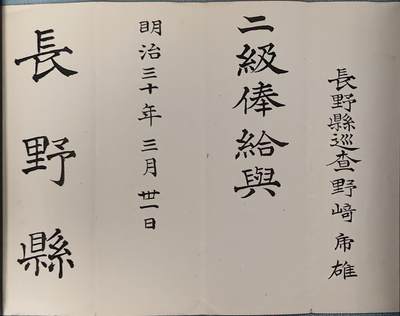 長野縣巡查野﨑乕雄
二級俸給與
明治三十年三月卅一日
長野縣